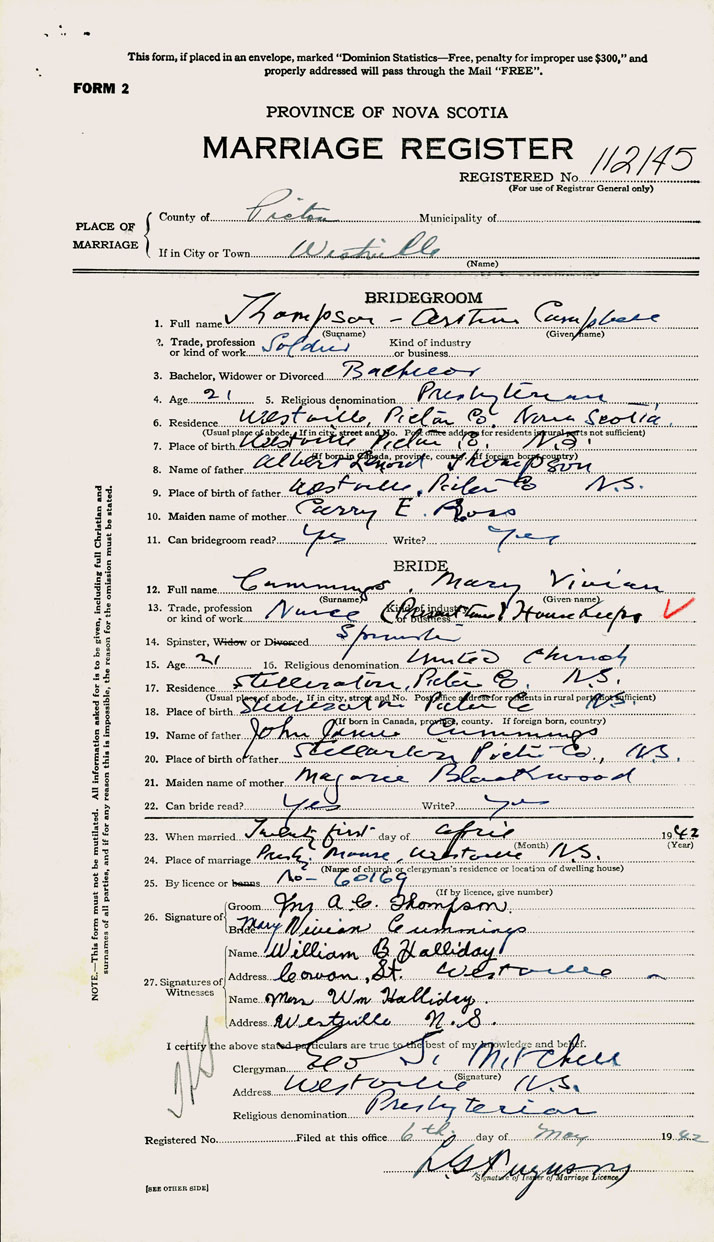 This form, if placed in an envelope, marked "Dominion Statistics—Free, penalty for improper use $300," and
properly addressed will pass through the Mail "FREE".
FORM 2
PROVINCE OF NOVA SCOTIA
MARRIAGE REGISTER
112145
REGISTERED No.
(For use of Registrar General only)
PLACE OF MARRIAGE
County of Pictou Municipality of
If in City or Town Westville
(Name)
BRIDEGROOM
1. Full name Thompson - Arthur Campbell
(Surname) (Given name)
2. Trade, profession or kind of work Soldier Kind of industry or business
3. Bachelor, Widower or Divorced Bachelor
4. Age 21 5. Religious denomination Presbyterian
6. Residence Westville, Pictou Co. Nova Scotia
(Usual place of abode. If in city, street and No. Post office address for residents in rural parts not sufficient)
7. Place of birth Westville Pictou Co. N.S.
(If born in Canada, province, county. If foreign born, country)
8. Name of father Albert Thompson
9. Place of birth of father Westville, Pictou Co N.S.
10. Maiden name of mother Carry E. Ross
11. Can bridegroom read? Yes Write? Yes
BRIDE
12. Full name Cummings, Mary Vivian
(Surname) (Given name)
13. Trade, profession or kind of work Nurse Kind of industry or business (Present time) HouseKeeps
14. Spinster, Widow or Divorced Spinster
15. Age 21 16. Religious denomination United Church
17. Residence Stellarton, Pictou Co. N.S.
(Usual place of abode. If in city, street and No. Post office address for residents in rural parts not sufficient)
18. Place of birth Stellarton Pictou Co N.S.
(If born in Canada, province, county. If foreign born, country)
19. Name of father John Cummings
20. Place of birth of father Stellarton Pictou Co., N.S.
21. Maiden name of mother Marjorie Blackwood
22. Can bride read? Yes Write? Yes
23. When married Twenty first day of April 1942
(Month) (Year)
24. Place of marriage Presby. Manse, Westville N.S.
(Name of church or clergyman's residence or location of dwelling house)
25. By licence or banns No - 60169
(If by licence, give number)
26. Signature of
Groom A. C. Thompson
Bride Mary Vivian Cummings
27. Signatures of Witnesses
Name William B Halliday
Address Cowan, St. Westville
Name Mrs Wm Halliday
Address Westville N.S.
I certify the above stated particulars are true to the best of my knowledge and belief.
Clergyman Geo S. Mitchell
(Signature)
Address Westville N.S.
Religious denomination Presbyterian
Registered No. Filed at this office 6th day of May 1942
L G Ferguson
Signature of Issuer of Marriage Licence
[SEE OTHER SIDE]
NOTE.—This form must not be mutilated. All information asked for is to be given, including full Christian and
surnames of all parties, and if for any reason this is impossible, the reason for the omission must be stated.